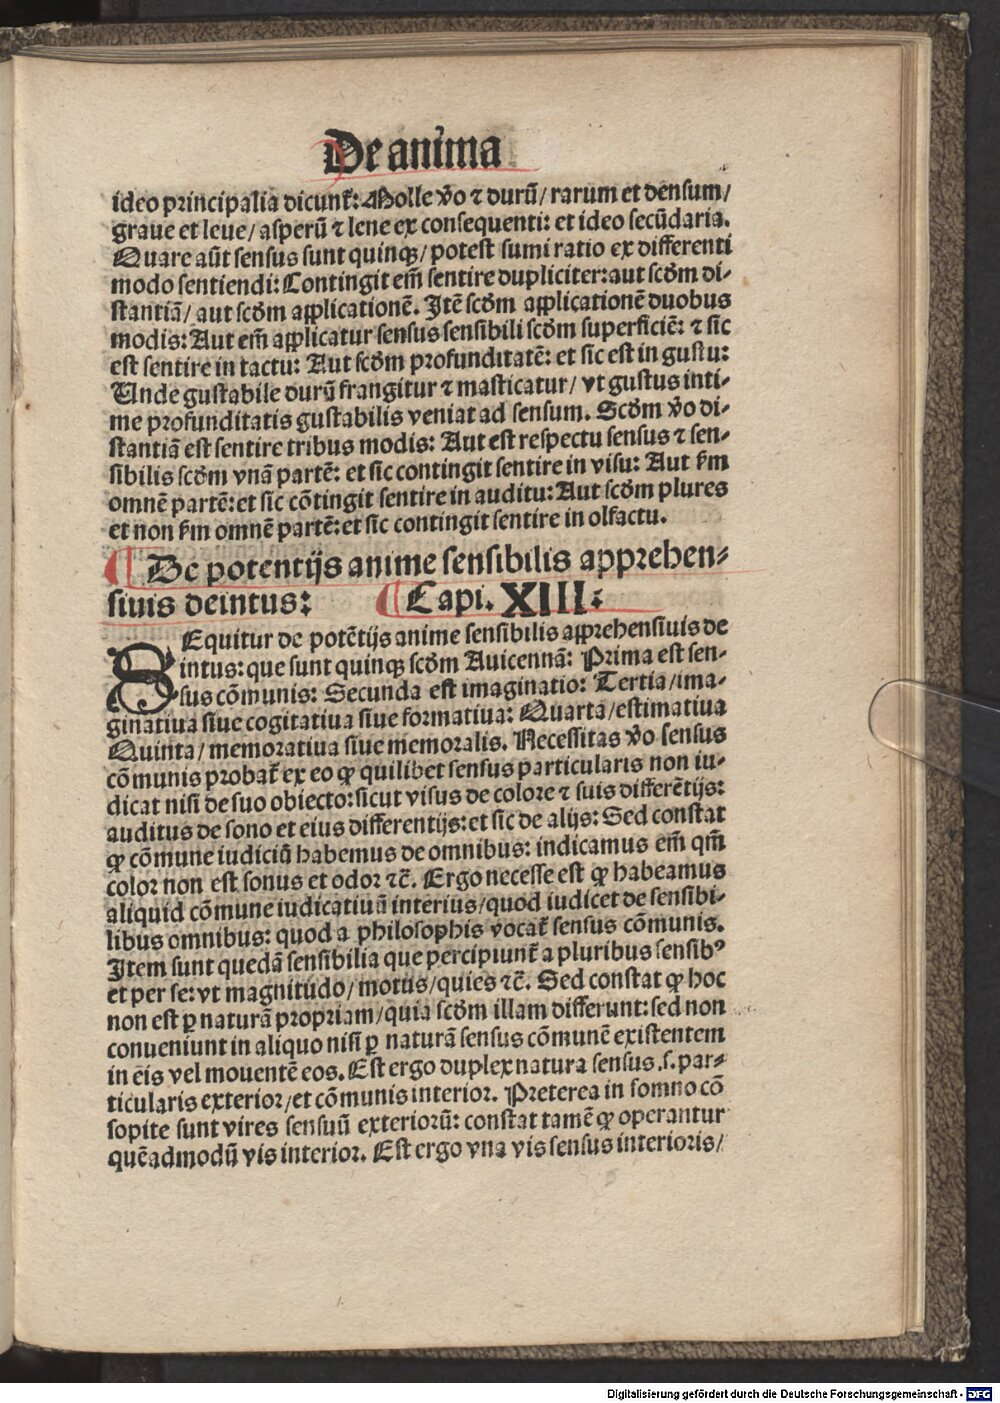 De anima
ideo principalia dicunt᷑: Molle v̄o ⁊ durū/ rarum et densum/
graue et leue/ asperū ⁊ lene ex consequenti: et ideo secūdaria.
Quare aūt sensus sunt quinqꝫ/ potest sumi ratio ex differenti
modo sentiendi: Contingit em̄ sentire dupliciter: aut scd̄m di-
stantiā/ aut scd̄m applicationē. Itē scd̄m applicationē duobus
modis: Aut em̄ applicatur sensus sensibili scd̄m superficiē: ⁊ sic
est sentire in tactu: Aut scd̄m profunditatē: et sic est in gustu:
Unde gustabile durū frangitur ⁊ masticatur/ vt gustus inti-
me profunditatis gustabilis veniat ad sensum. Scd̄m v̄o di-
stantiā est sentire tribus modis: Aut est respectu sensus ⁊ sen-
sibilis scd̄m vnā partē: et sic contingit sentire in visu: Aut ẜm
omnē partē: et sic cōtingit sentire in auditu: Aut scd̄m plures
et non ẜm omnē partē: et sic contingit sentire in olfactu.
De potentijs anime sensibilis apprehen-
siuis deintus: Capi. XIII:
SEquitur de potētijs anime sensibilis apprehensiuis de
intus: que sunt quinqꝫ scd̄m Auicennā: Prima est sen-
sus cōmunis: Secunda est imaginatio: Tertia/ ima-
ginatiua siue cogitatiua siue formatiua: Quarta/ estimatiua
Quinta/ memoratiua siue memoralis. Necessitas v̄o sensus
cōmunis probat᷑ ex eo ꝙ quilibet sensus particularis non iu-
dicat nisi de suo obiecto: sicut visus de colore ⁊ suis differētijs:
auditus de sono et eius differentijs: et sic de alijs: Sed constat
ꝙ cōmune iudiciū habemus de omnibus: indicamus em̄ qm̄
color non est sonus et odor ⁊c̄. Ergo necesse est ꝙ habeamus
aliquid cōmune iudicatiuū interius/ quod iudicet de sensibi-
libus omnibus: quod a philosophis vocat᷑ sensus cōmunis.
Item sunt quedā sensibilia que percipiunt᷑ a pluribus sensibꝰ
et per se: vt magnitudo/ motus/ quies ⁊c̄. Sed constat ꝙ hoc
non est ꝑ naturā propriam/ quia scd̄m illam differunt: sed non
conueniunt in aliquo nisi ꝑ naturā sensus cōmunē existentem
in eis vel mouentē eos. Est ergo duplex natura sensus .s. par-
ticularis exterior/ et cōmunis interior. Preterea in somno cō
sopite sunt vires sensuū exteriorū: constat tamē ꝙ operantur
quēadmodū vis interior. Est ergo vna vis sensus interioris/
Digitalisierung gefördert durch die Deutsche Forschungsgemeinschaft - DFG